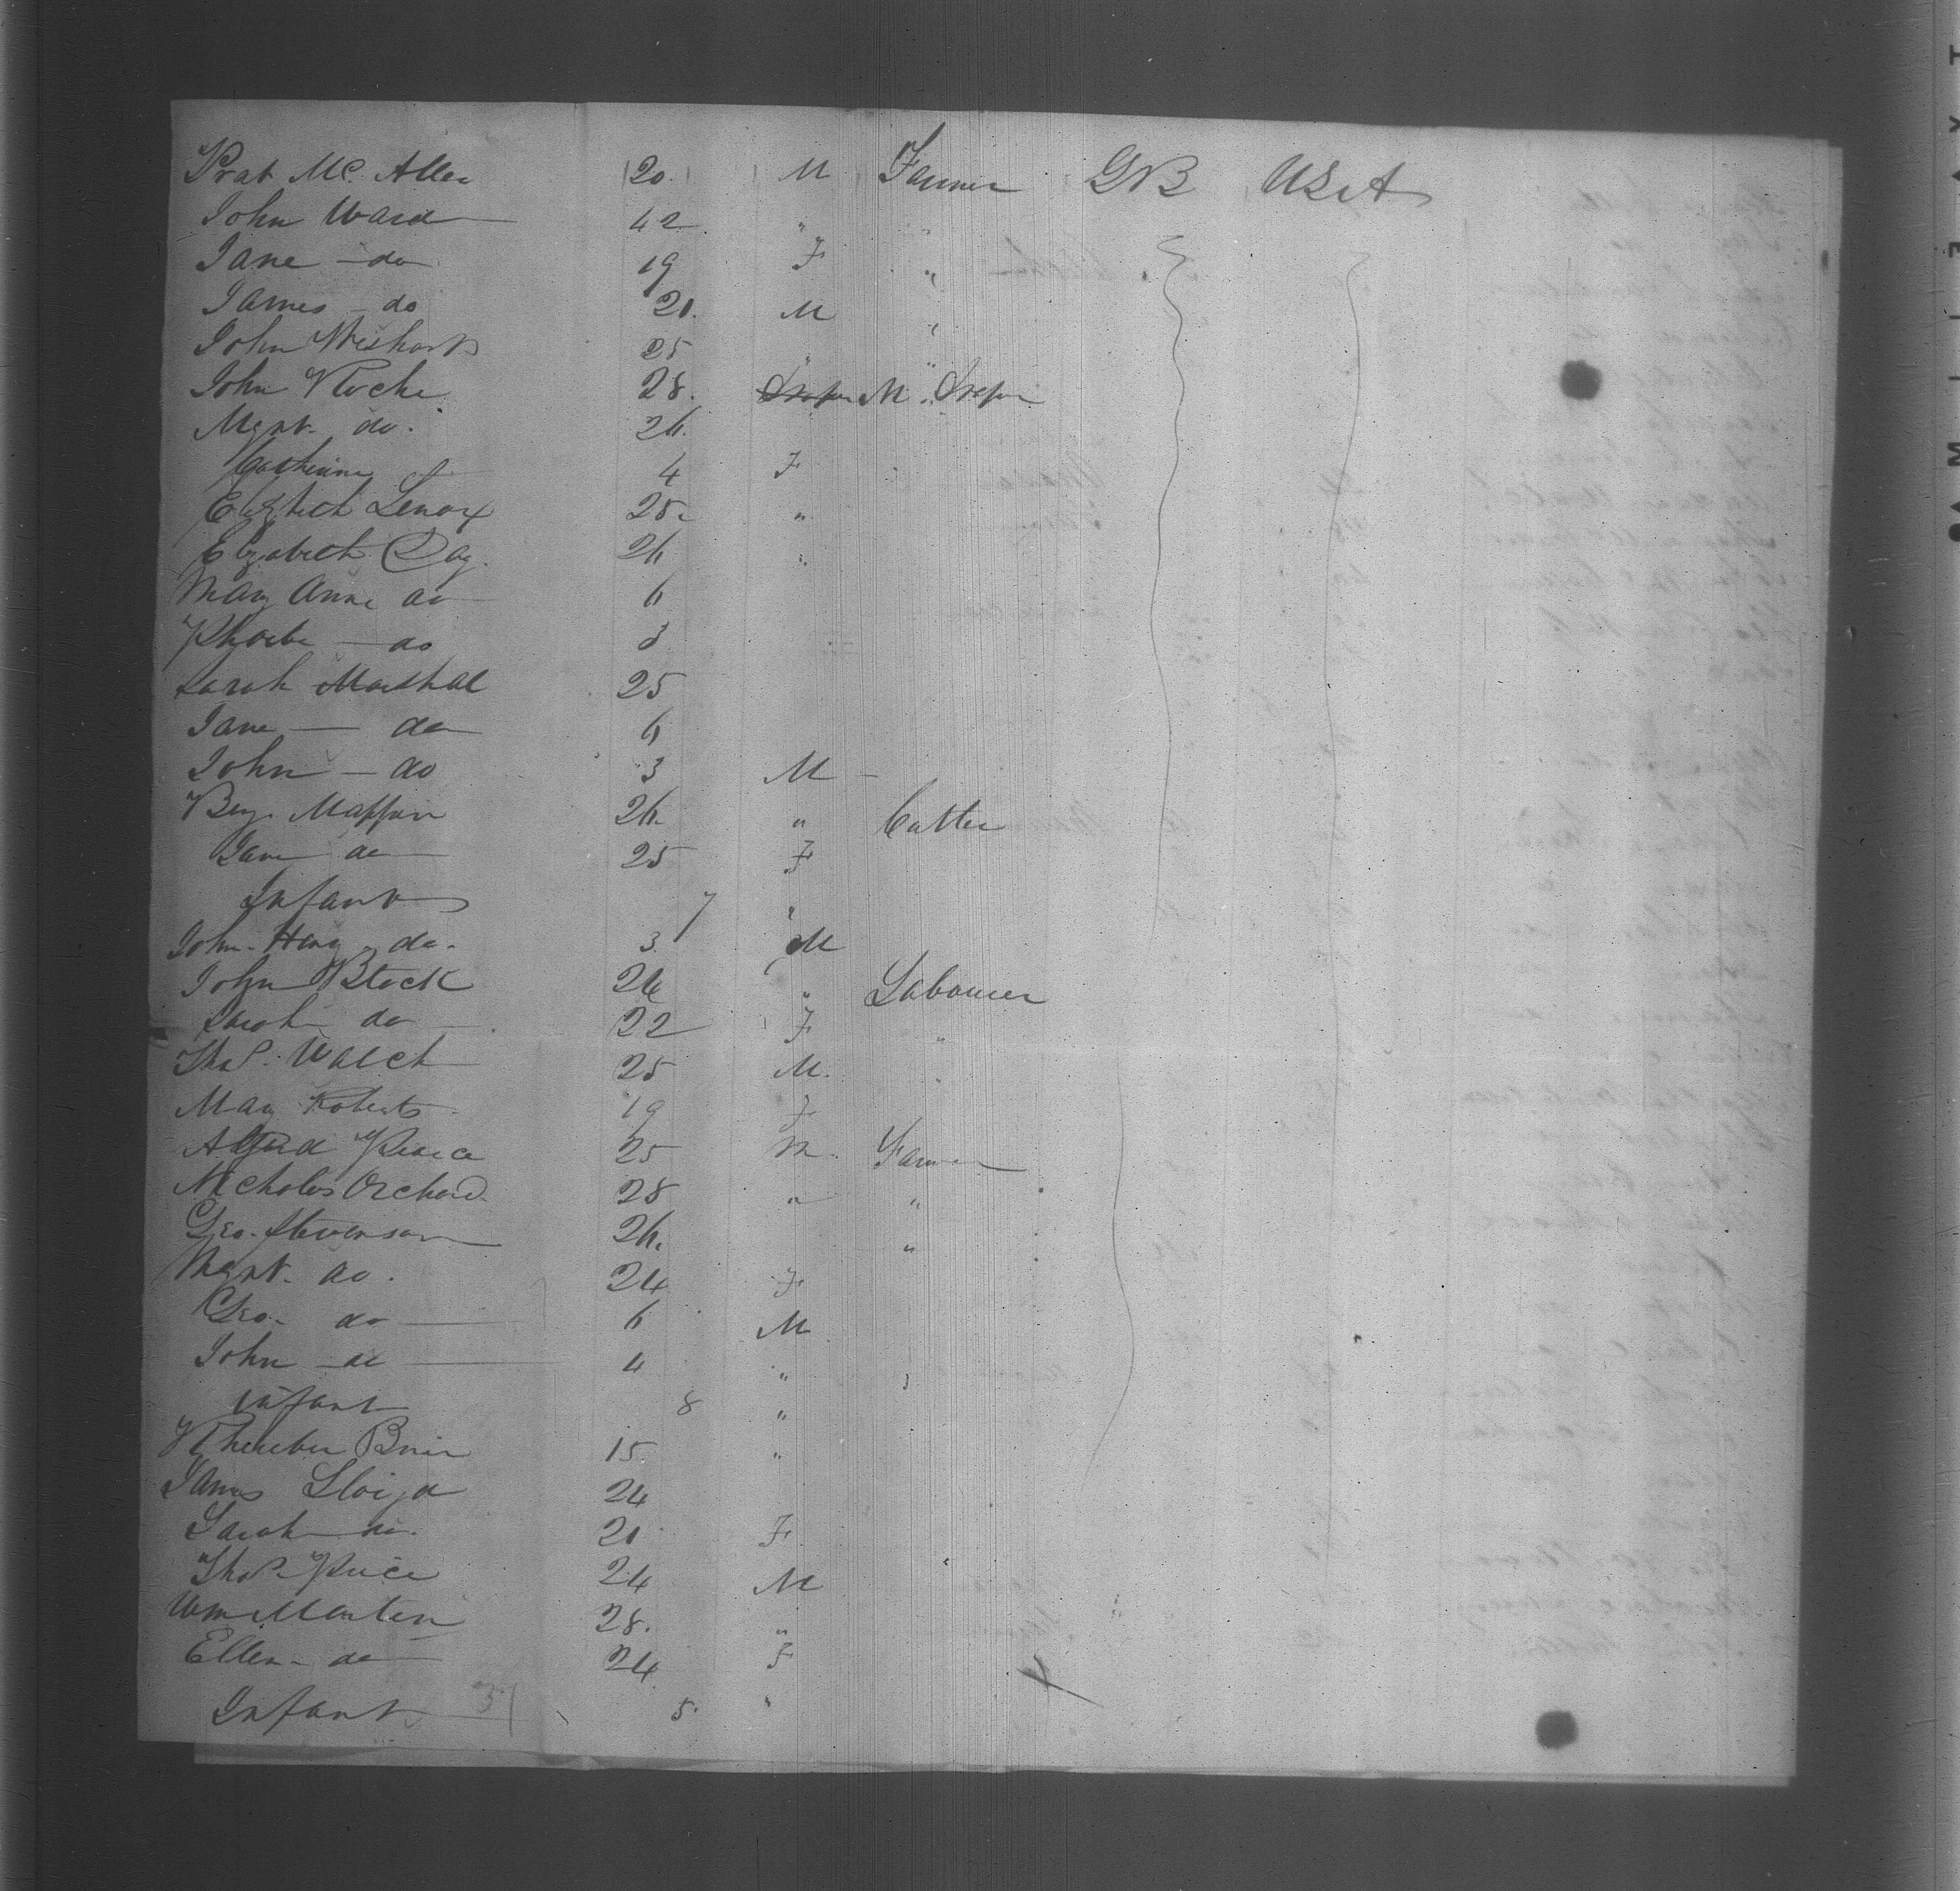 Prat Mc. Allen 20. M Farmer GB USA
John Ward 42 " "
Jane do 19 F "
James do 21. M "
John Wishart 25 " "
John Roche 28. M. Draper
Mgrt. do. 26.
Catherine 4 F
Elizbeth Lenox 25. "
Elizabeth Day. 26 "
Mary Anne do 6
Phoebe do 3
Sarah Marshal 25
Jane do 6
John do 3 M
Benj. 26 " Cutter
Jane do 25 F
Infant 7 "
John Heny do. 3. M
John Block 26 " Labourer
Sarah do 22 F "
Thos. Walch 25 M. "
Mary Roberts 19 F
Alfred Pearce 25 M. Farmer
Nicholas Orchard 28 " "
Geo. Stevenson 26. "
Mgrt. do. 24 F
Geo. do 6 M
John do 4 "
Infant 8 "
15 "
James Lloyd 24
Sarah do. 21 F
Thos. Price 24 M
Wm Martin 28. "
Ellen do 24. F
Infant 37 5. "